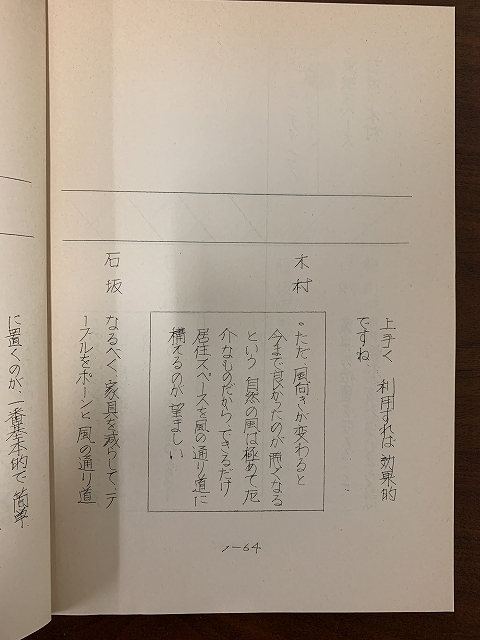 上手く 利用すれば 効果的
ですね
木村
・ただ 風向きが変わると
今まで良かったのが 悪くなる
という 自然の風は極めて厄
介なものだから、できるだけ
居住スペースを風の通り道に
構えるのが 望ましい
石坂
なるべく 家具を減らして、テ
ーブルをポーンと 風の通り道
に置くのが、一番基本的で 簡単
1-64